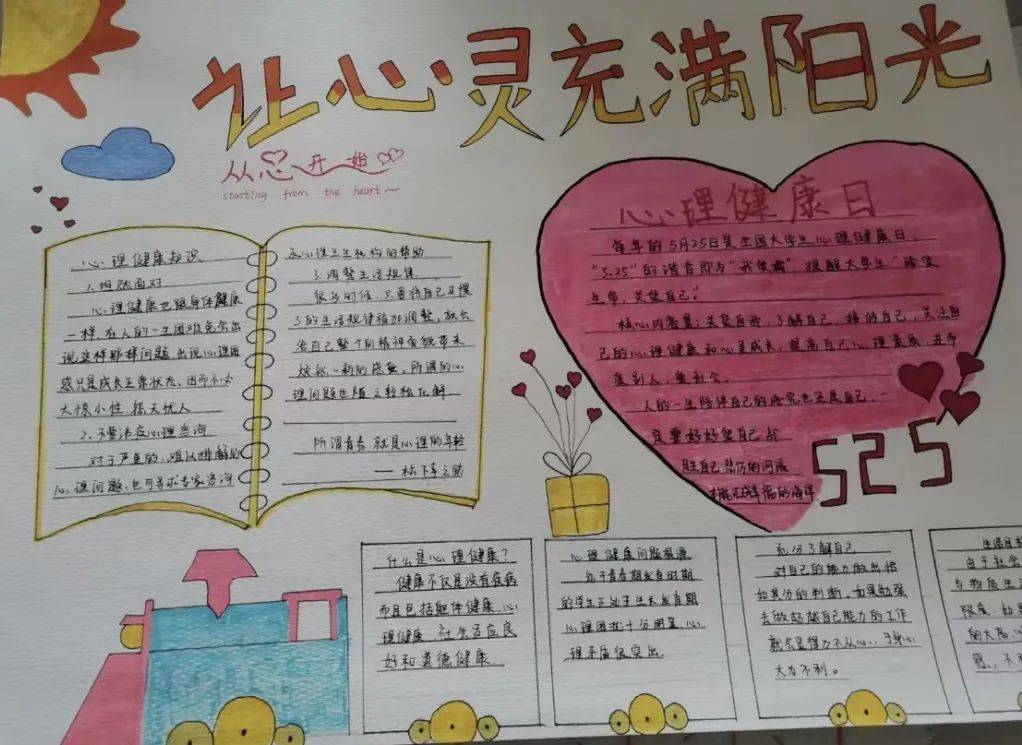 让心灵充满阳光
从心开始
starting from the heart
心理健康知识
1.坦然面对
心理健康也跟身体健康
一样,在人的一生困难免会出
现这样那样问题,出现心理困
惑只是成长正常状态、因而不必
大惊小怪,怨天忧人
2.不要讳疾心理咨询
对于严重的,难以排解的
心理问题,也可寻求专家咨询
及心理卫生机构的帮助
3.调整生活规律
很多时候,只要将自己习惯
了的生活规律稍加调整,就会
给自己整个的精神面貌带来
焕然一新的感觉,所谓的心
理问题也随之轻松化解.
所谓青春就是心理的年轻
——松下幸之助
心理健康日
每年的5月25日是全国大学生心理健康日.
"5.25"的谐音即为"我爱我",提醒大学生"珍惜
生命,关爱自己".
核心内容是:关爱自我,了解自己,接纳自己,关注自
己的心理健康和心灵成长,提高自己心理素质,进而
爱别人,爱社会.
人的一生陪伴自己的终究也还是自己,一
定要好好爱自己,战
胜自己,悲伤的河流
才能汇成幸福的海洋.
525
什么是心理健康?
健康不仅是没有疾病
而且包括躯体健康、心
理健康、社会适应良
好和道德健康.
心理健康问题根源
处于青春期发育时期
的学生正处于生长发育期
心理困扰十分明显,心
理矛盾很突出.
充分了解自己
对自己的能力做出恰
如其分的判断,如果勉强
去做好超自己能力的工作
就会显得力不从心,于身心
大为不利。
生活目
由于社会
与物质生活
限度,如果
的大高,心
感,不利